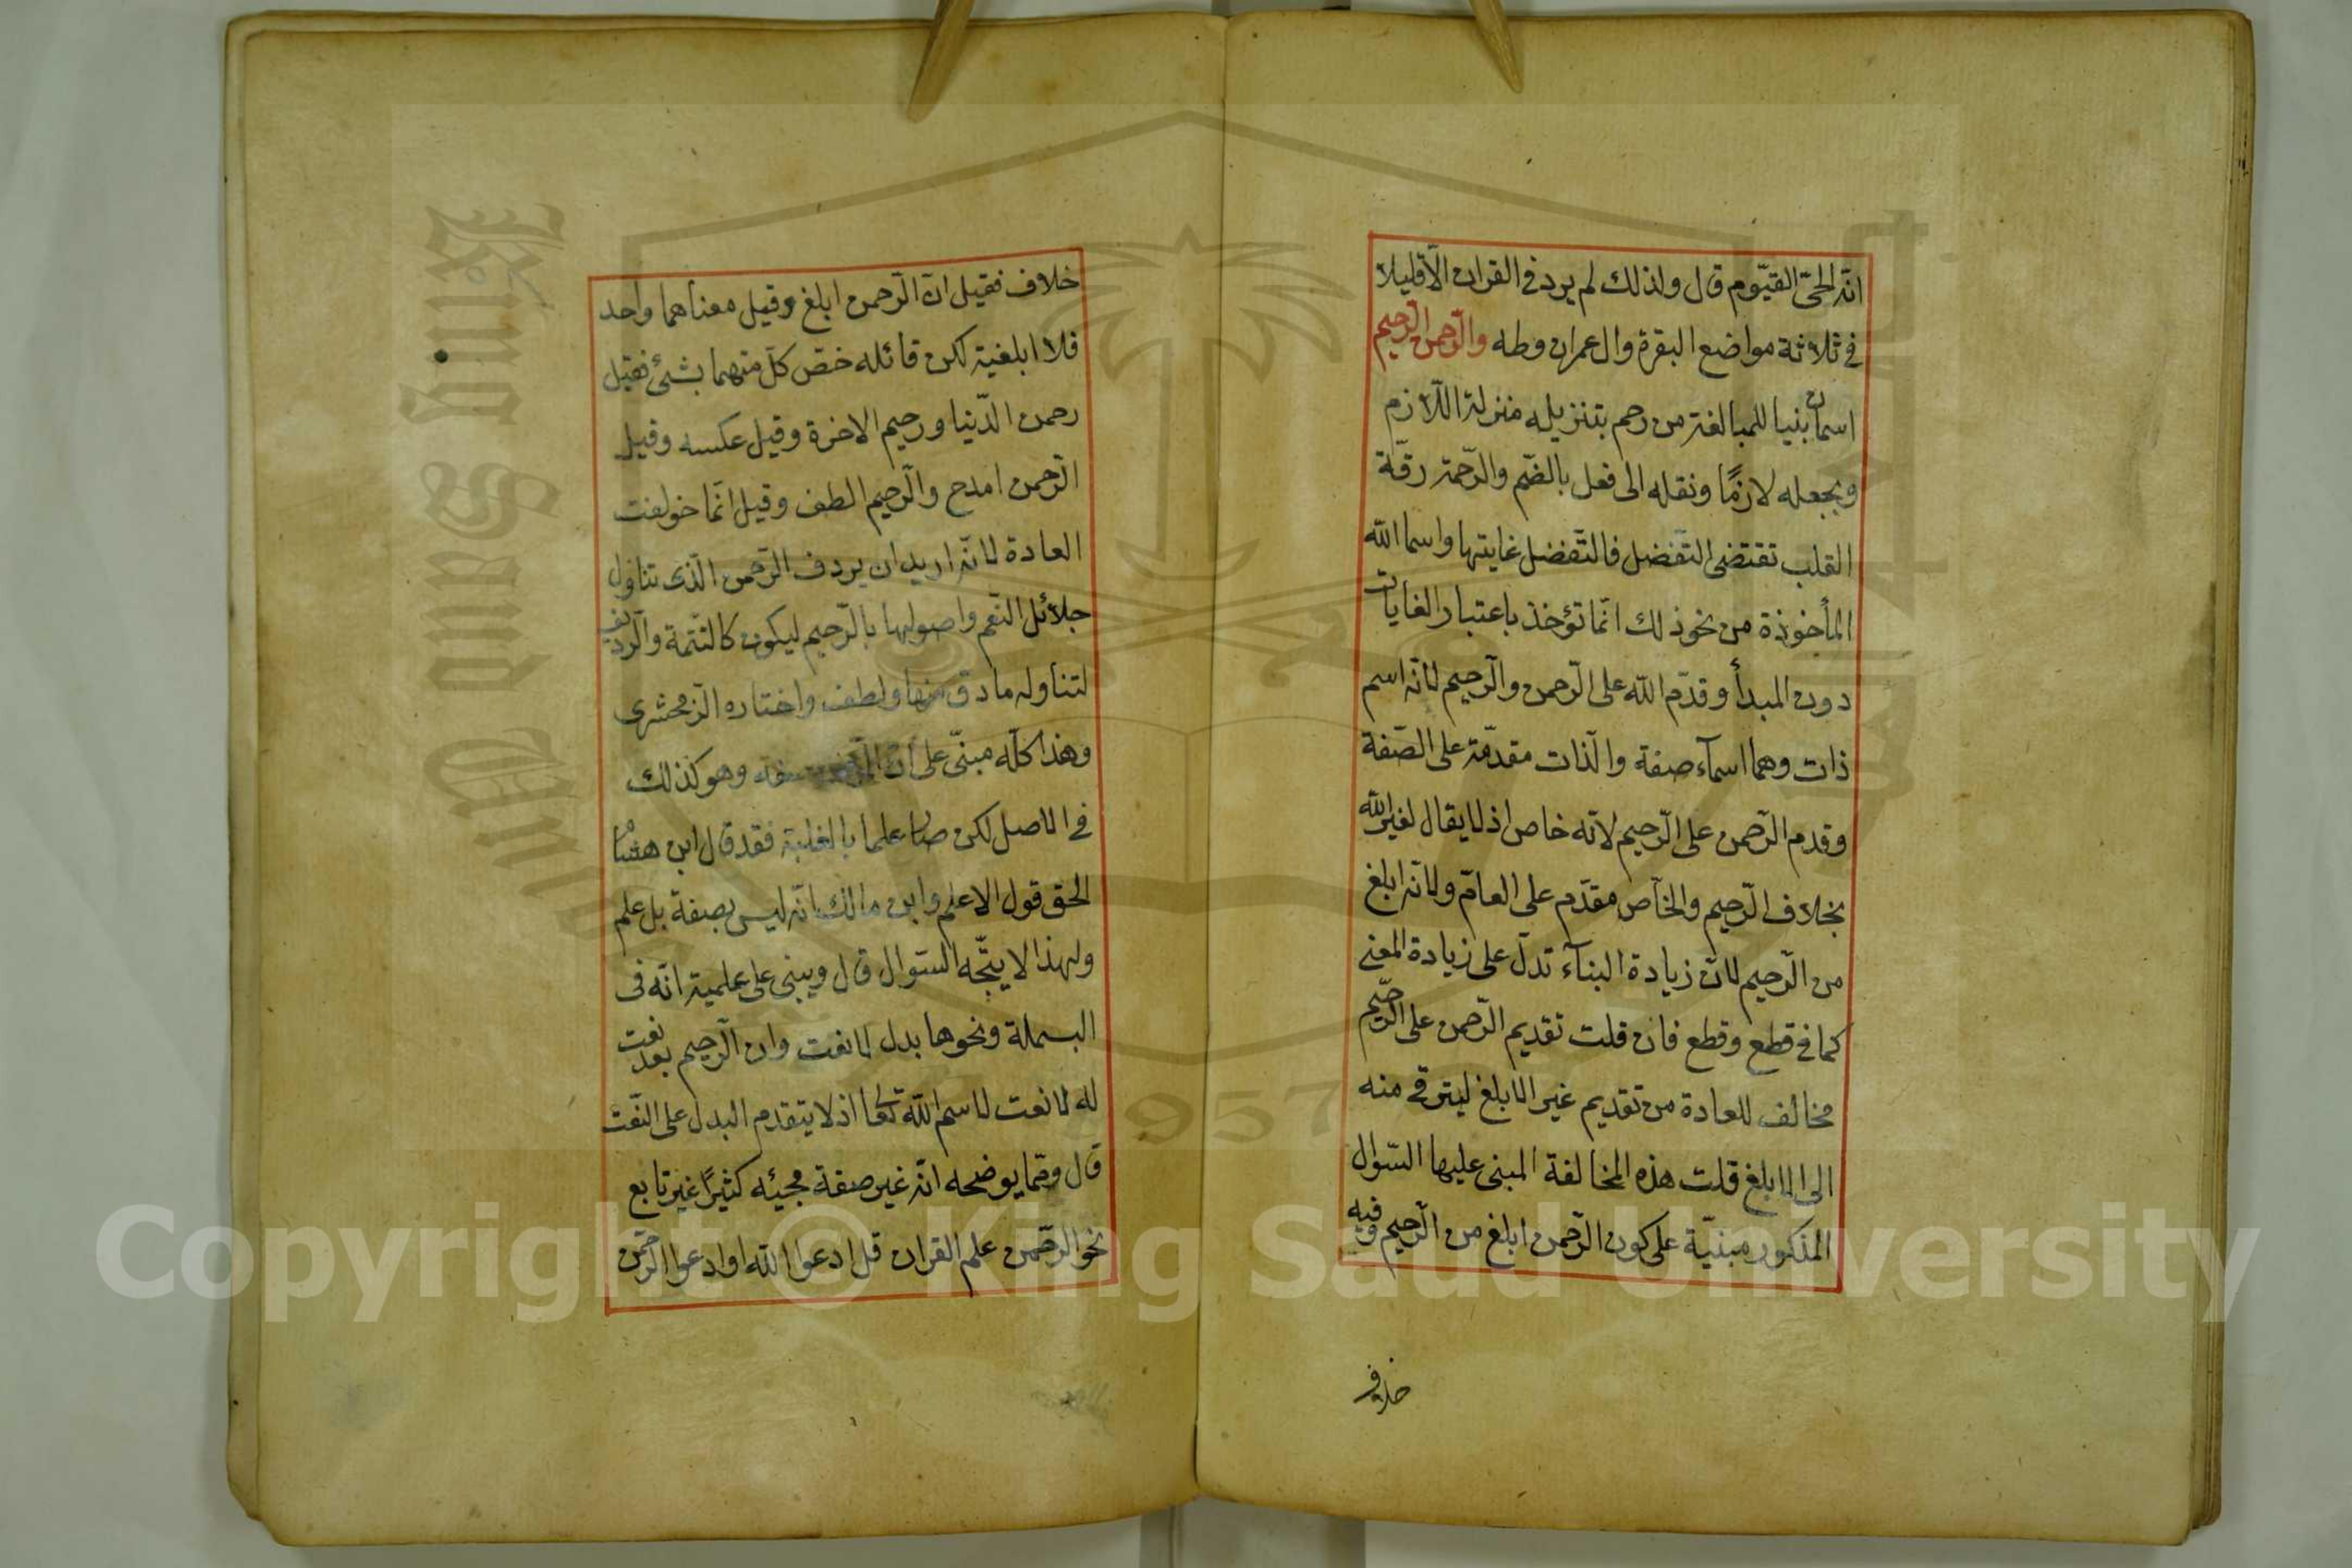 انّه الحيّ القيّوم قال ولذلك لم يرد في القران الّا قليلا
في ثلاثة مواضع البقرة وال عمران وطه والرّحمن الرّحيم
اسمان بنيا للمبالغة من رحم بتنزيله منزلة اللّازم
وبجعله لازمًا ونقله الى فعل بالضّم والرّحمة رقّة
القلب تقتضى التّفضل فالتّفضل غايتها واسما الله
المأخوذة من نحو ذلك انّما تؤخذ باعتبار الغايات
دون المبدأ وقدّم الله على الرّحمن والرّحيم لانّه اسم
ذات وهما اسمآء صفة والذّات مقدّمة على الصّفة
وقدم الرّحمن على الرّحيم لانّه خاص اذ لا يقال لغير الله
بخلاف الرّحيم والخآصّ مقدّم على العامّ ولانّه ابلغ
من الرّحيم لانّ زيادة البنآء تدلّ على زيادة المعنى
كما في قطع وقطع فان قلت تقديم الرّحمن على الرّحيم
مخالف للعادة من تقديم غير الابلغ ليترقى منه
الى الابلغ قلت هذه المخالفة المبنى عليها السّوال
المذكور مبنيّة على كون الرّحمن ابلغ من الرّحيم وفيه
خلاف
خلاف فقيل انّ الرّحمن ابلغ وقيل معناهما واحد
فلا ابلغية لكن قائله خصّ كلّ منهما بشئ فقيل
رحمن الدّنيا ورحيم الاخرة وقيل عكسه وقيل
الرّحمن امدح والرّحيم الطف وقيل انّما خولفت
العادة لانّه اريد ان يردف الرّحمن الّذى تناول
جلائل النّعم واصولها بالرّحيم ليكون كالتّتمة والرّديف
لتناوله ما دق منها ولطف واختاره الزّمخشرى
وهذا كلّه مبنّى على انّ الرّحمن صفة وهو كذلك
في الاصل لكن صار علما بالغلبة فقد قال ابن هشام
الحق قول الاعلم وابن مالك انّه ليس بصفة بل علم
ولهذا لا يتّجه السّوال قال ويبنى على علمية انّه في
البسملة ونحوها بدل لا نعت وان الرّحيم بعد نعت
له لا نعت لاسم الله تعا اذ لا يتقدم البدل على النّعت
قال وممّا يوضحه انّه غير صفة مجيئه كثيرًا غير تابع
نحو الرحمن علم القران قل ادعوا الله او ادعوا الرّحمن
Copyright © King Saud University
King Saud University
1957